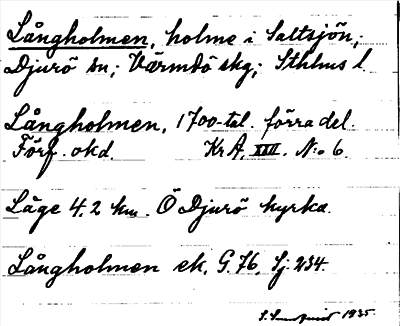 Långholmen, holme i Saltsjön;
Djurö sn; Värmdö skg; Sthlms l.
Långholmen, 1700-tal. förra del.
Förf. okd. Kr A, XXII. No 6.
Läge 4,2 km. Ö Djurö kyrka.
Långholmen ek. G. 76, Sj. 234.
1935